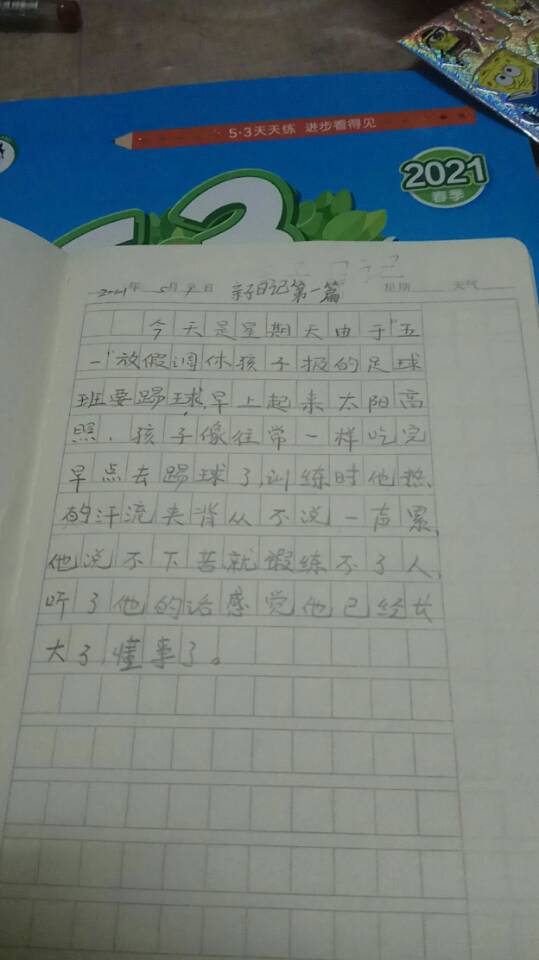 5·3天天练 进步看得见
2021
春季
53
日记
2021年 5月9日 亲子日记第一篇 星期 天气
今天是星期天由于"五
一"放假调休孩子报的足球
班要踢球,早上起来太阳高
照,孩子像往常一样吃完
早点去踢球了,训练时他热
的汗流夹背从不说一声累,
他说不下苦就锻练不了人,
听了他的话感觉他已经长
大了,懂事了。